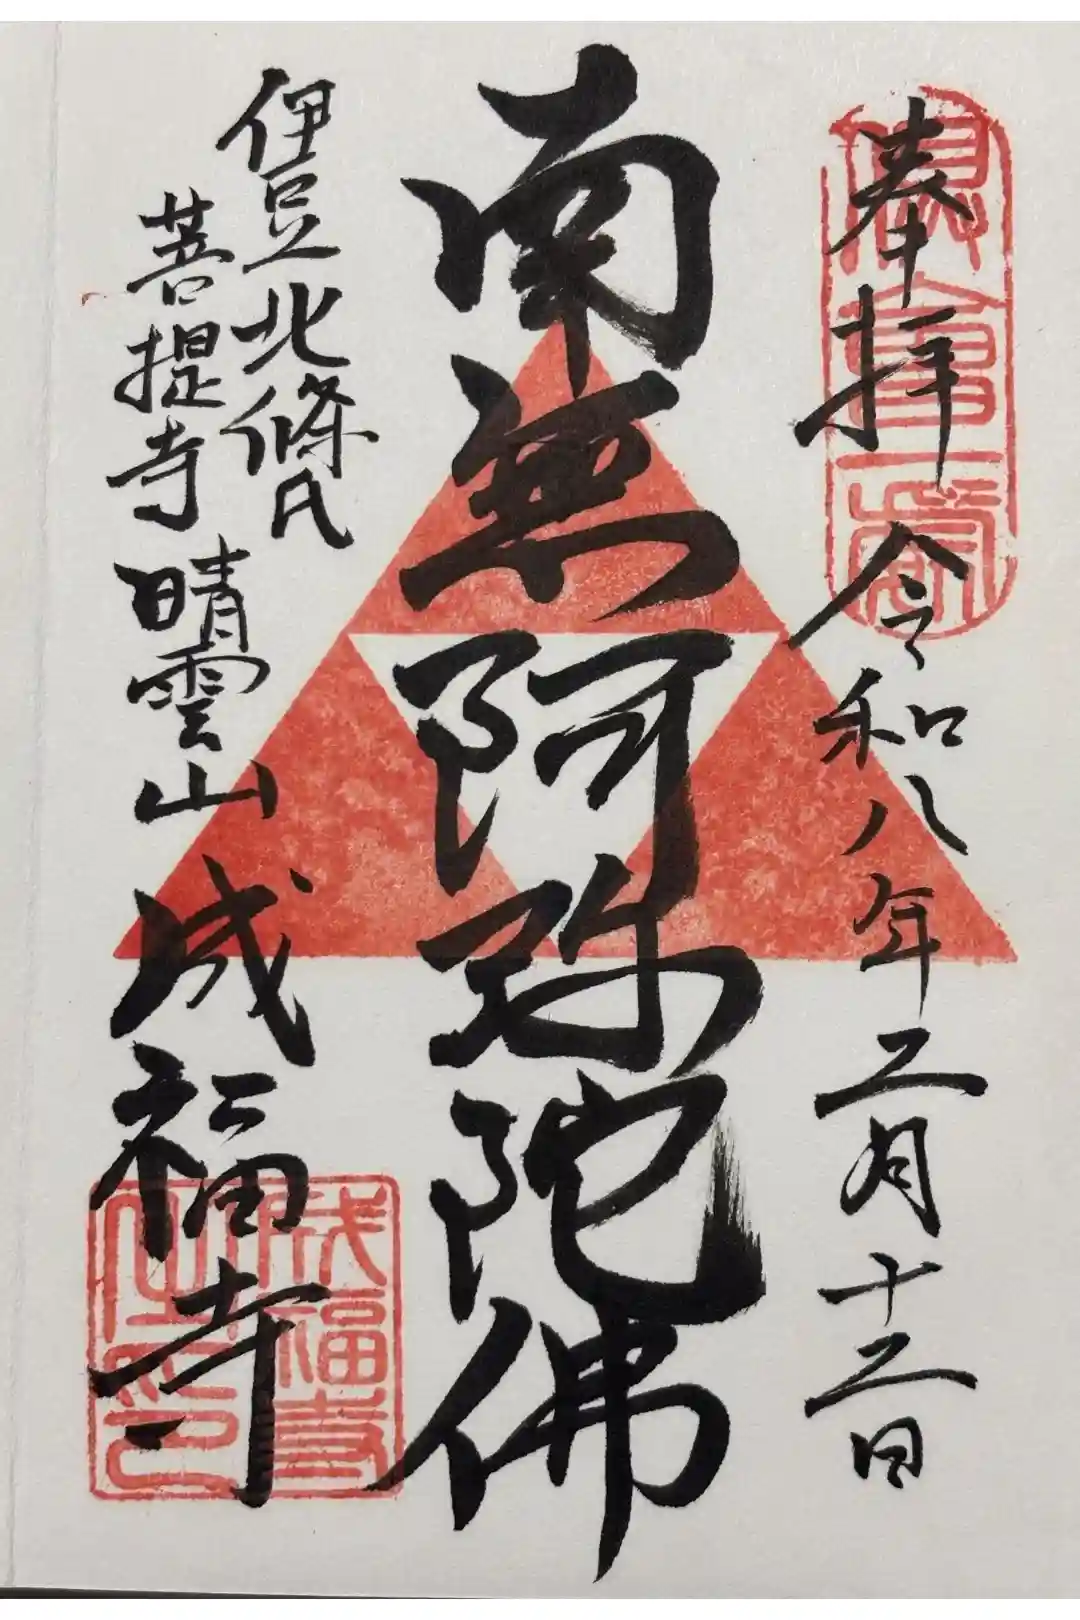 奉拝 令和八年二月十二日
倶會一處
南無阿弥陀佛
伊豆北條氏
菩提寺 晴雲山 成福寺
成福寺